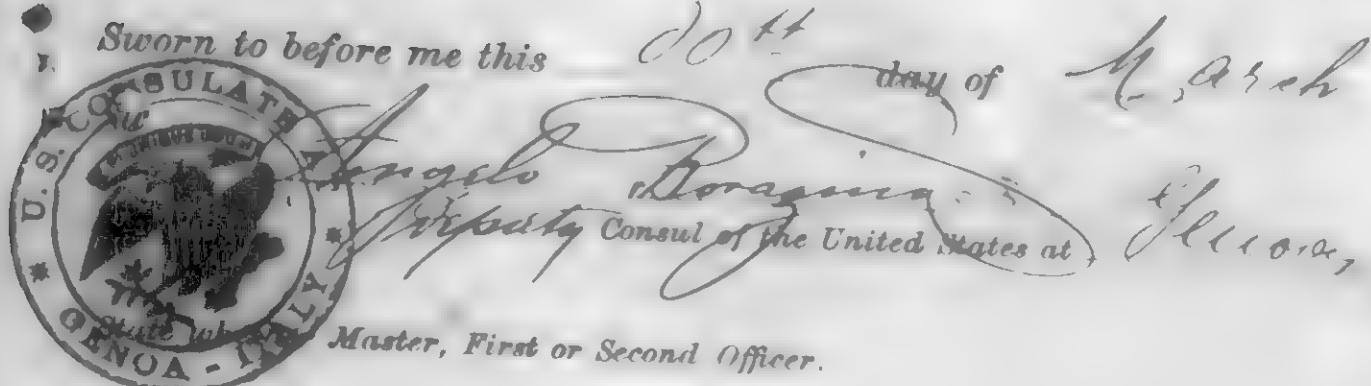 Sworn to before me this 30th day of March
Angelo Boragino
Deputy Consul of the United States at Genoa,
U.S. CONSULATE
GENOA - ITALY
State wh
Master, First or Second Officer.